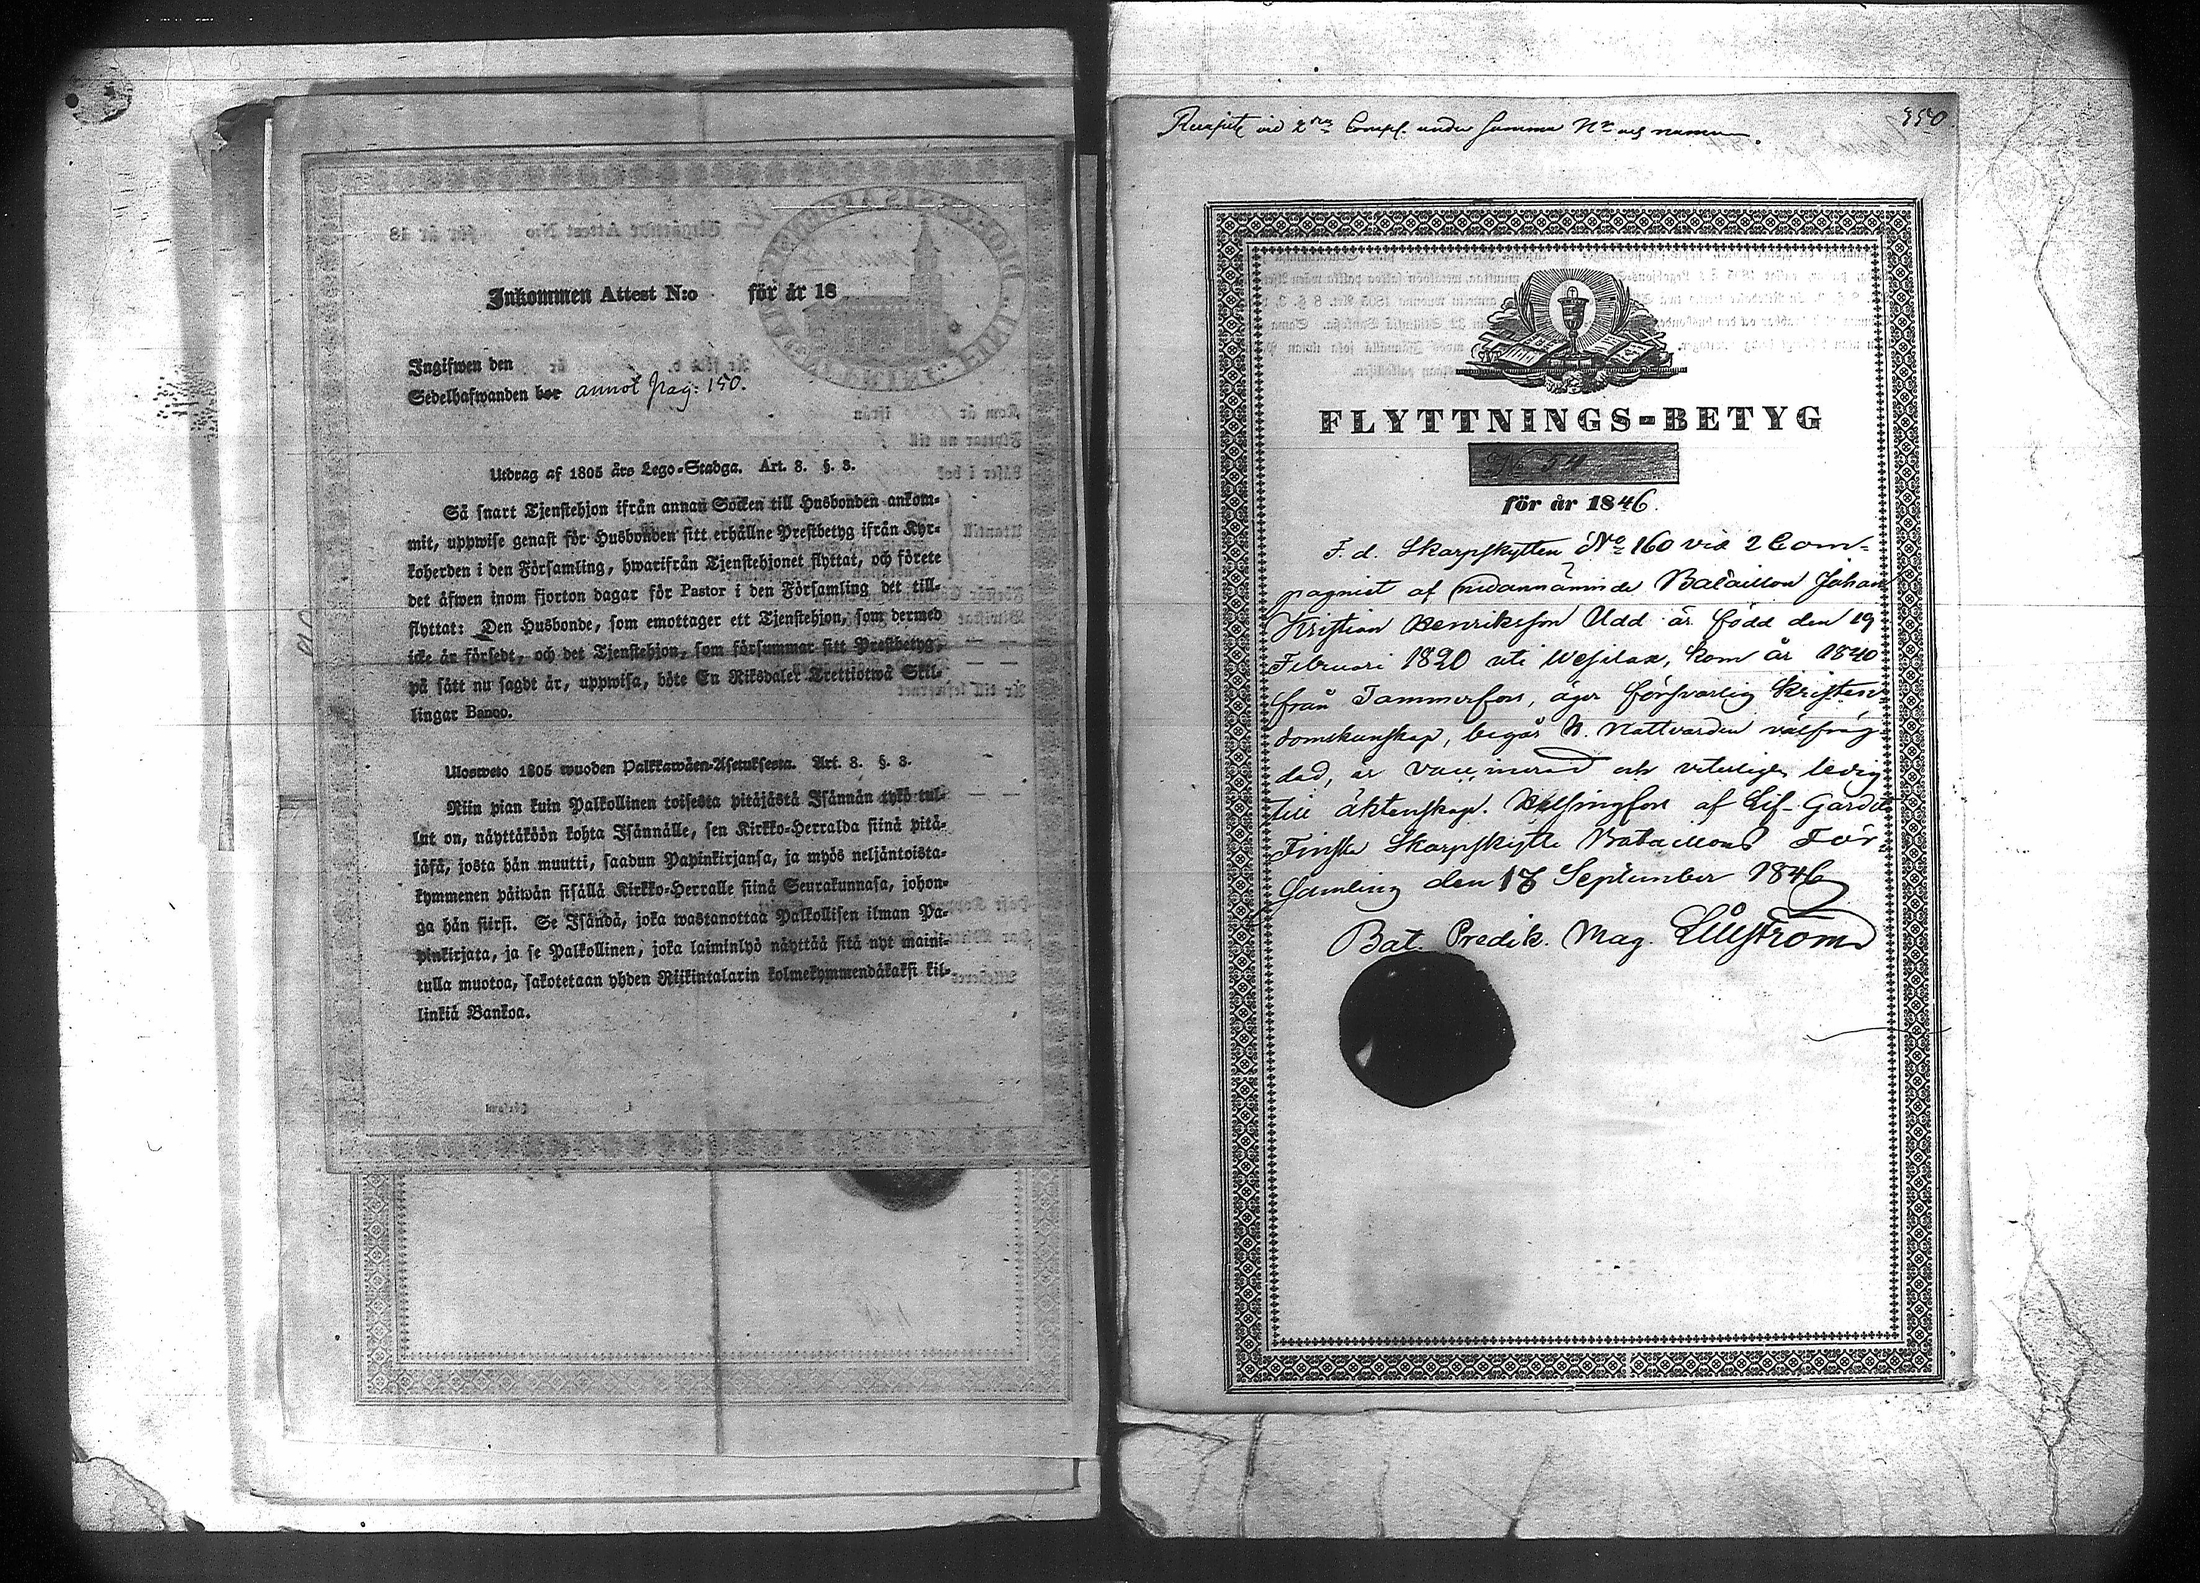 Inkommen Attest N:o för år 18
Ingifwen den
Sedelhafwanden bor annot pag: 150.
Utdrag af 1805 års Lego-Stadga. Art. 8. §. 3.
Så snart Tjenstehjon ifrån annan Socken till Husbonden ankom-
mit, uppwise genast för Husbonden sitt erhållne Prestbetyg ifrån Kyr-
koherden i den Församling, hwarifrån Tjenstehjonet flyttat, och förete
det äfwen inom fjorton dagar för Pastor i den Församling det till-
flyttat: Den Husbonde, som emottager ett Tjenstehjon, som dermed
icke är försedt, och det Tjenstehjon, som försummar sitt Prestbetyg,
på sätt nu sagdt är, uppwisa, böte En Riksdaler Trettiotwå Skil-
lingar Banco.
Ulosweto 1805 wuoden Palkkawäen-Asetuksesta. Art. 8. §. 3.
Niin pian kuin Palkollinen toisesta pitäjästä Isännän tykö tul-
lut on, näyttäköön kohta Isännälle, sen Kirkko-Herralda siinä pitä-
jäsä, josta hän muutti, saadun Papinkirjansa, ja myös neljäntoista-
kymmenen päiwän sisällä Kirkko-Herralle siinä Seurakunnasa, johon-
ga hän siirsi. Se Isändä, joka wastanottaa Palkollisen ilman Pa-
pinkirjata, ja se Palkollinen, joka laiminlyö näyttää sitä nyt maini-
tulla muotoa, sakotetaan yhden Riikintalarin kolmekymmendäkaksi kil-
linkiä Bankoa.
vid 2dra Comp. under samma Nr och namn
550.
FLYTTNINGS-BETYG
No 54
för år 1846.
F. d. Skarpskytten No 160 vid 2 Com-
pagniet af nedannämnde Bataillon Johan
Kristian Henriksson Udd är född den 19
Februari 1820 uti Wesilax, kom år 1840
från Tammerfors, äger försvarlig Kristen
domskunskap, begår H. Nattvarden välfräg
dad, är vaccinerad och veterligen ledig
till äktenskap. Helsingfors af Lif-Gardets
Finska Skarpskytte Bataillons För-
samling den 17 September 1846
Bat. Predik. Mag. Lilljström